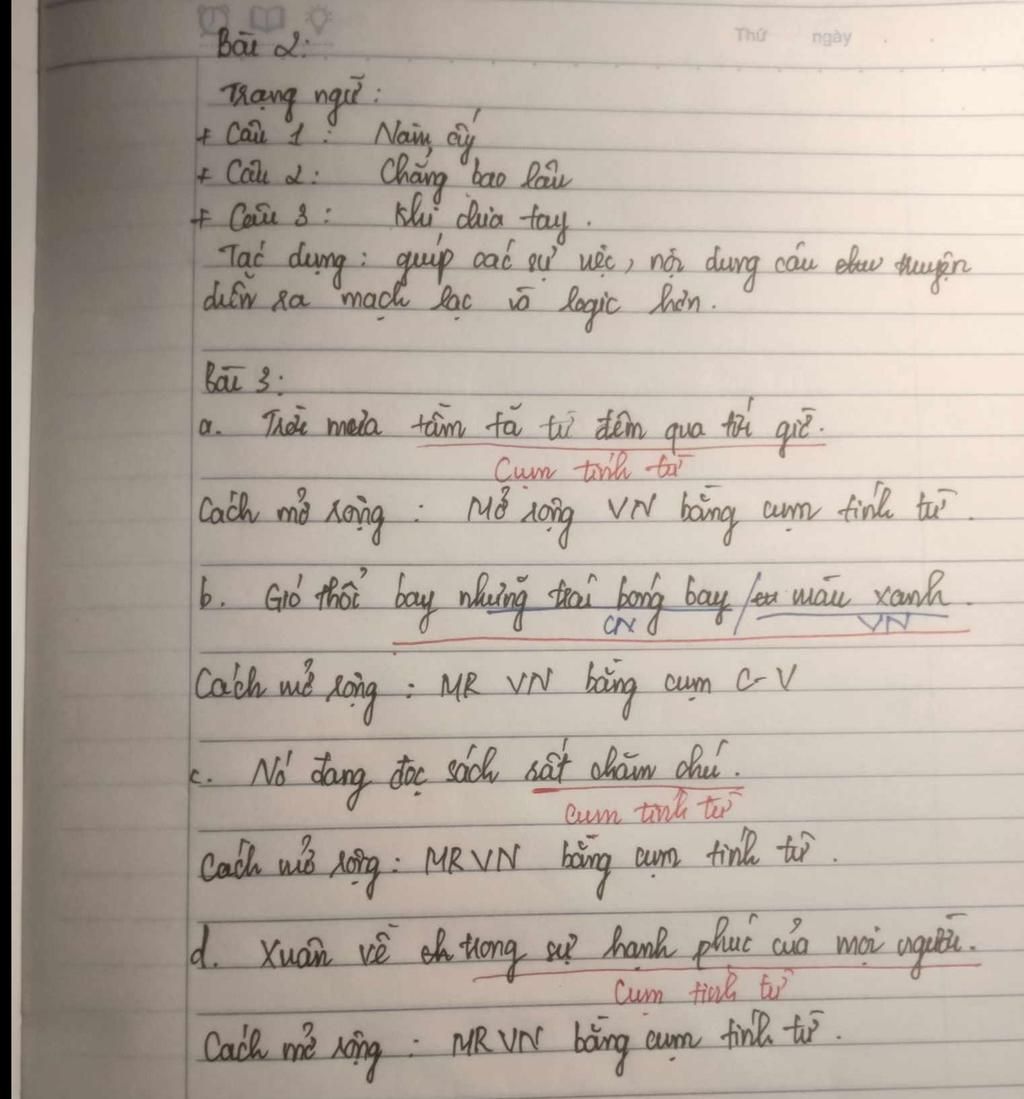 Thứ ngày
Bài 2:
Trạng ngữ:
+ Câu 1: Năm ấy
+ Câu 2: Chẳng bao lâu
+ Câu 3: Khi chia tay.
Tác dụng: giúp các sự việc, nội dung câu truyện
diễn ra mạch lạc và logic hơn.
Bài 3:
a. Trời mưa tầm tã từ đêm qua tới giờ.
Cụm tính từ
Cách mở rộng: Mở rộng VN bằng cụm tính từ.
b. Gió thổi bay những trái bóng bay / màu xanh.
CN VN
Cách mở rộng: MR VN bằng cụm C-V
c. Nó đang đọc sách rất chăm chú.
Cụm tính từ
Cách mở rộng: MR VN bằng cụm tính từ.
d. Xuân về trong sự hạnh phúc của mọi người.
Cụm tính từ
Cách mở rộng: MR VN bằng cụm tính từ.